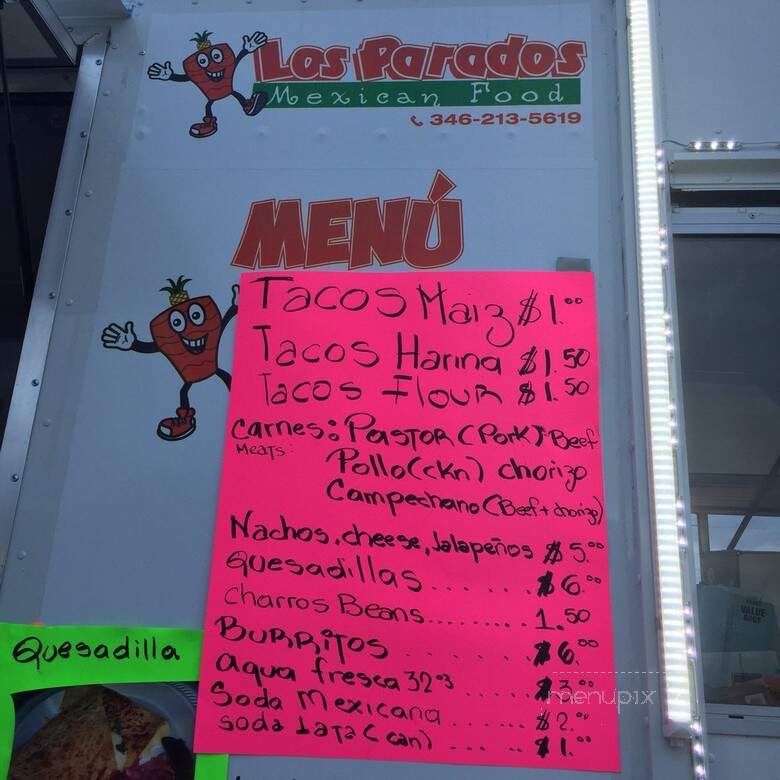 Los Parados
Mexican Food
346-213-5619
MENÚ
Tacos Maiz $1.00
Tacos Harina $1.50
Tacos Flour $1.50
Carnes: Pastor (Pork) Beef
Meats:
Pollo (ckn) chorizo
Campechano (Beef + chorizo)
Nachos, cheese, Jalapeños $5.00
Quesadillas...... $6.00
Charros Beans......... 1.50
BURRITOS ...... $6.00
agua fresca 32oz .... $3.00
Soda Mexicana .... $2.00
soda LATA (can) .... $1.00
Quesadilla
menupix
VALUE